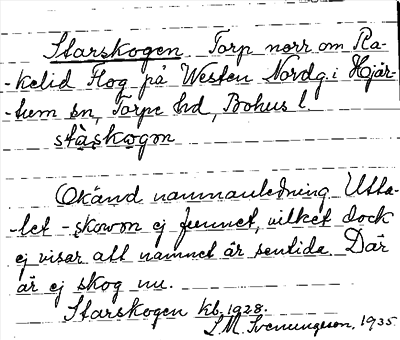 Starskogen. Torp norr om Ra-
-kelid Flog på Westen Nordg. i Hjär-
-tum sn, Torpe hd, Bohus l.
stàskogon
Okänd namnanledning. Utta-
-let -skowon ej funnet, vilket dock
ej visar att namnet är sentida. Där
är ej skog nu.
Starskogen kb. 1928.
L.M. Svenungsson. 1935.